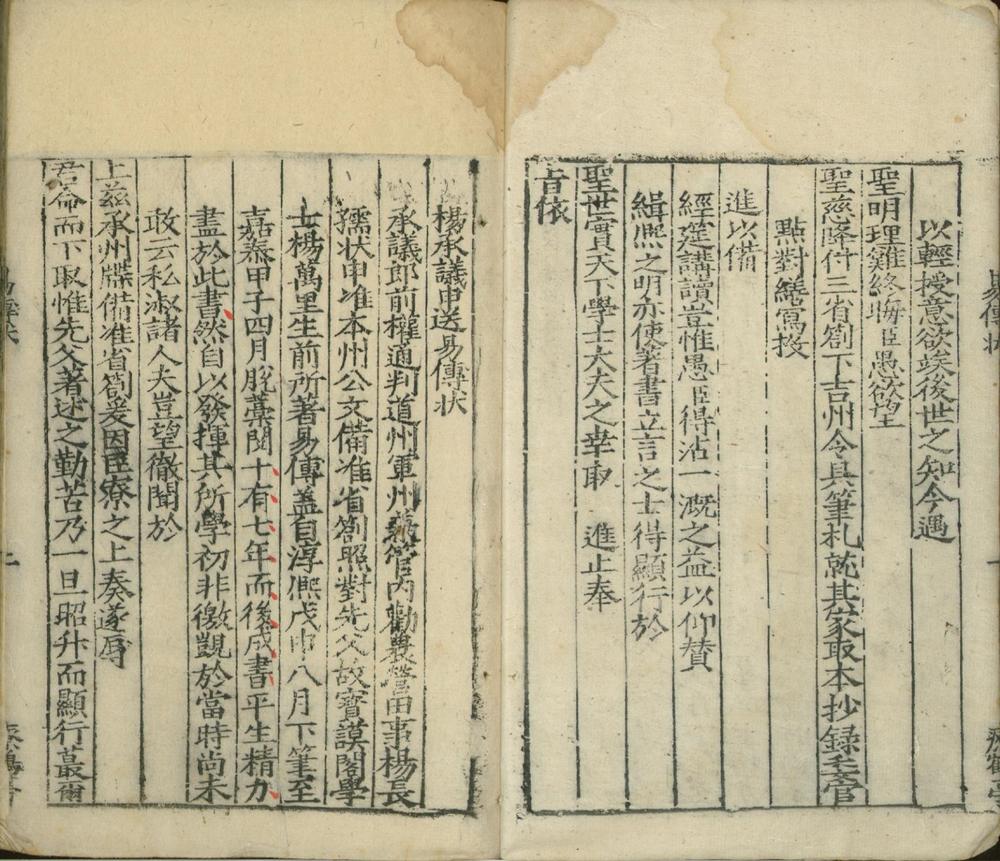 以輕授意欲竢後世之知今遇
聖明理難終晦臣愚欲望
聖慈降付三省劄下吉州令具筆札就其家取本抄録委官
點對繕寫投
進以備
經筵講讀豈惟愚臣得沾一溉之益以仰賛
緝熈之明亦使著書立言之士得顯行於
聖世實天下學士大夫之幸取 進止奉
旨依
楊承議申送易傳状
承議郎前權通判道州軍州兼管内勸農營田事楊長
孺状申准本州公文備准省劄照對先父故寳謨閣學
士楊萬里生前所著易傳蓋自淳熈戊申八月下筆至
嘉泰甲子四月脱藁閲十有七年而後成書平生精力
盡於此書然自以發揮其所學初非徼覬於當時尚未
敢云私淑諸人夫豈望徹聞於
上兹承州牒備准省劄爰因臣寮之上奏遂辱
君命而下取惟先父著述之勤苦乃一旦昭升而顯行蕞爾